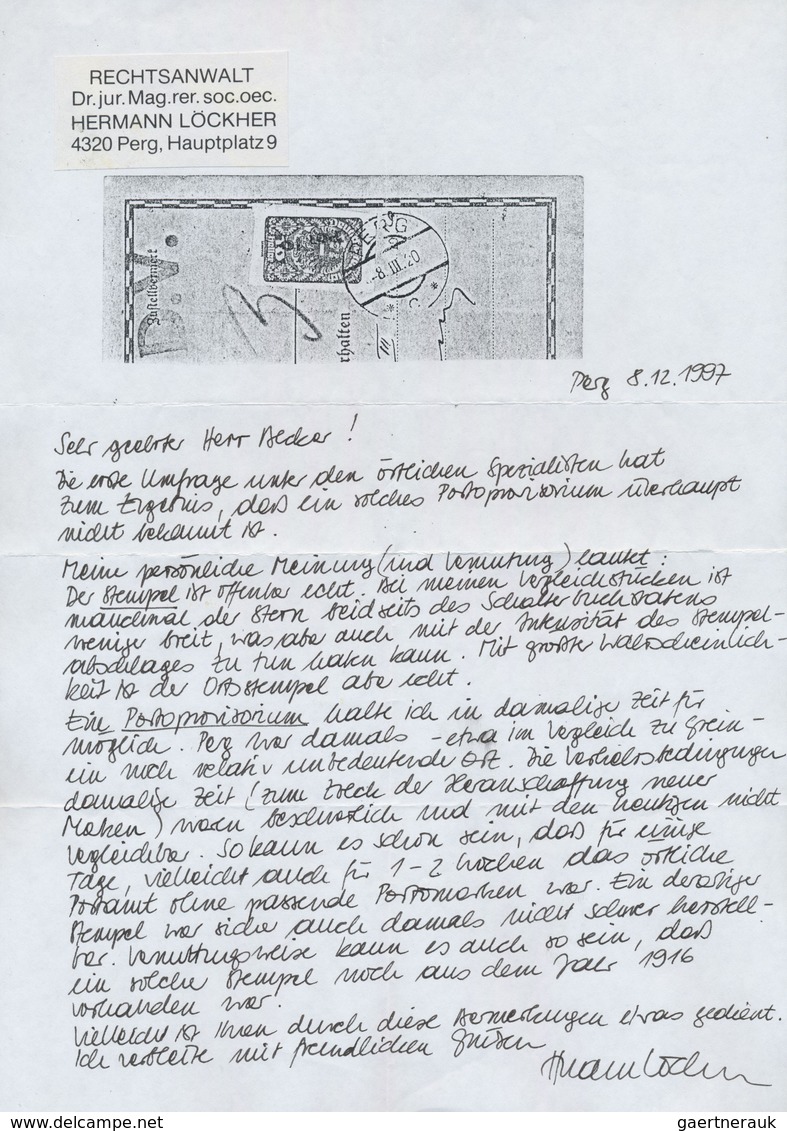 RECHTSANWALT
Dr.jur. Mag.rer. soc.oec.
HERMANN LÖCKHER
4320 Perg, Hauptplatz 9
Zustellvermerk
ERG
-8.III.20
* C *
erhalten
Perg 8.12.1997
Sehr geehrter Herr Becker!
Die erste Umfrage unter den örtlichen Spezialisten hat
zum Ergebnis, daß ein solches Portoprovisorium überhaupt
nicht bekannt ist.
Meine persönliche Meinung (und Vermutung) lautet:
Der Stempel ist offenbar echt. Bei meinen Vergleichstücken ist
manchmal der Stern beidseits des Schalterbuchstabens
weniger breit, was aber auch mit der Intensität des Stempel-
abschlages zu tun haben kann. Mit größter Wahrscheinlich-
keit ist der Ortsstempel aber echt.
Ein Portoprovisorium halte ich in damaliger Zeit für
möglich. Perg war damals - etwa im Vergleich zu Grein -
ein noch relativ unbedeutender Ort. Die Verkehrsbedingungen
damaliger Zeit (zum Zweck der Heranschaffung neuer
Marken) waren beschwerlich und mit den heutigen nicht
vergleichbar. So kann es schon sein, daß für einige
Tage, vielleicht auch für 1-2 Wochen das örtliche
Postamt ohne passende Portomarken war. Ein derartiger
Stempel war sicher auch damals nicht schwer herstell-
bar. Vermutungsweise kann es auch so sein, daß
ein solcher Stempel noch aus dem Jahr 1916
vorhanden war.
Vielleicht ist Ihnen durch diese Bemerkungen etwas gedient.
Ich verbleibe mit freundlichen Grüßen
delcampe.net
gaertnerauk